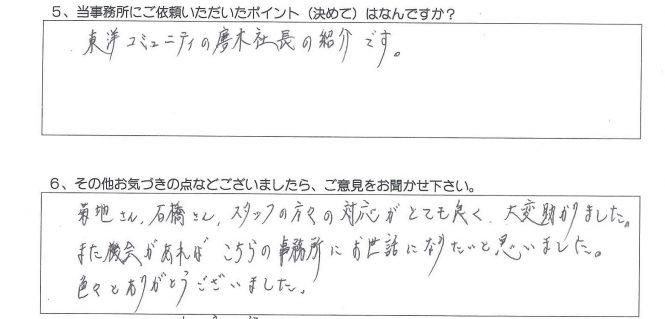 5、当事務所にご依頼いただいたポイント（決めて）はなんですか？
東洋コミュニティの唐木社長の紹介です。
6、その他お気づきの点などございましたら、ご意見をお聞かせ下さい。
菊地さん、石橋さん、スタッフの方々の対応がとても良く、大変助かりました。
また機会があれば こちらの事務所にお世話になりたいと思いました。
色々とありがとうございました。